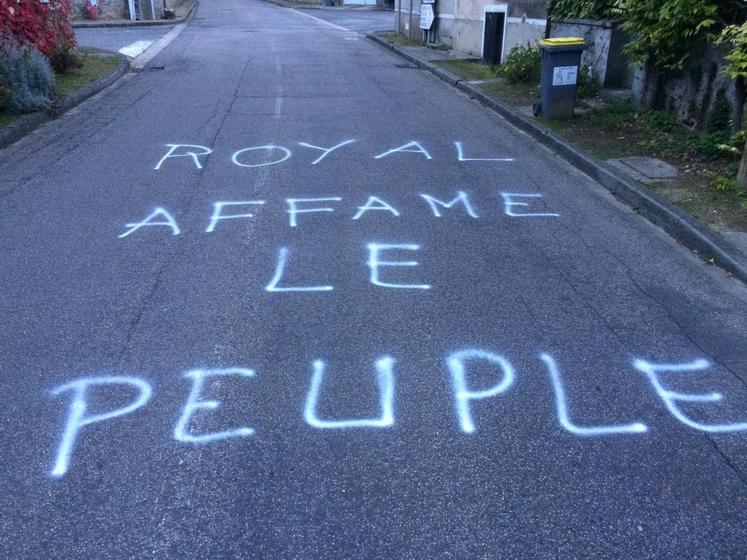 ROYAL
AFFAME
LE
PEUPLE